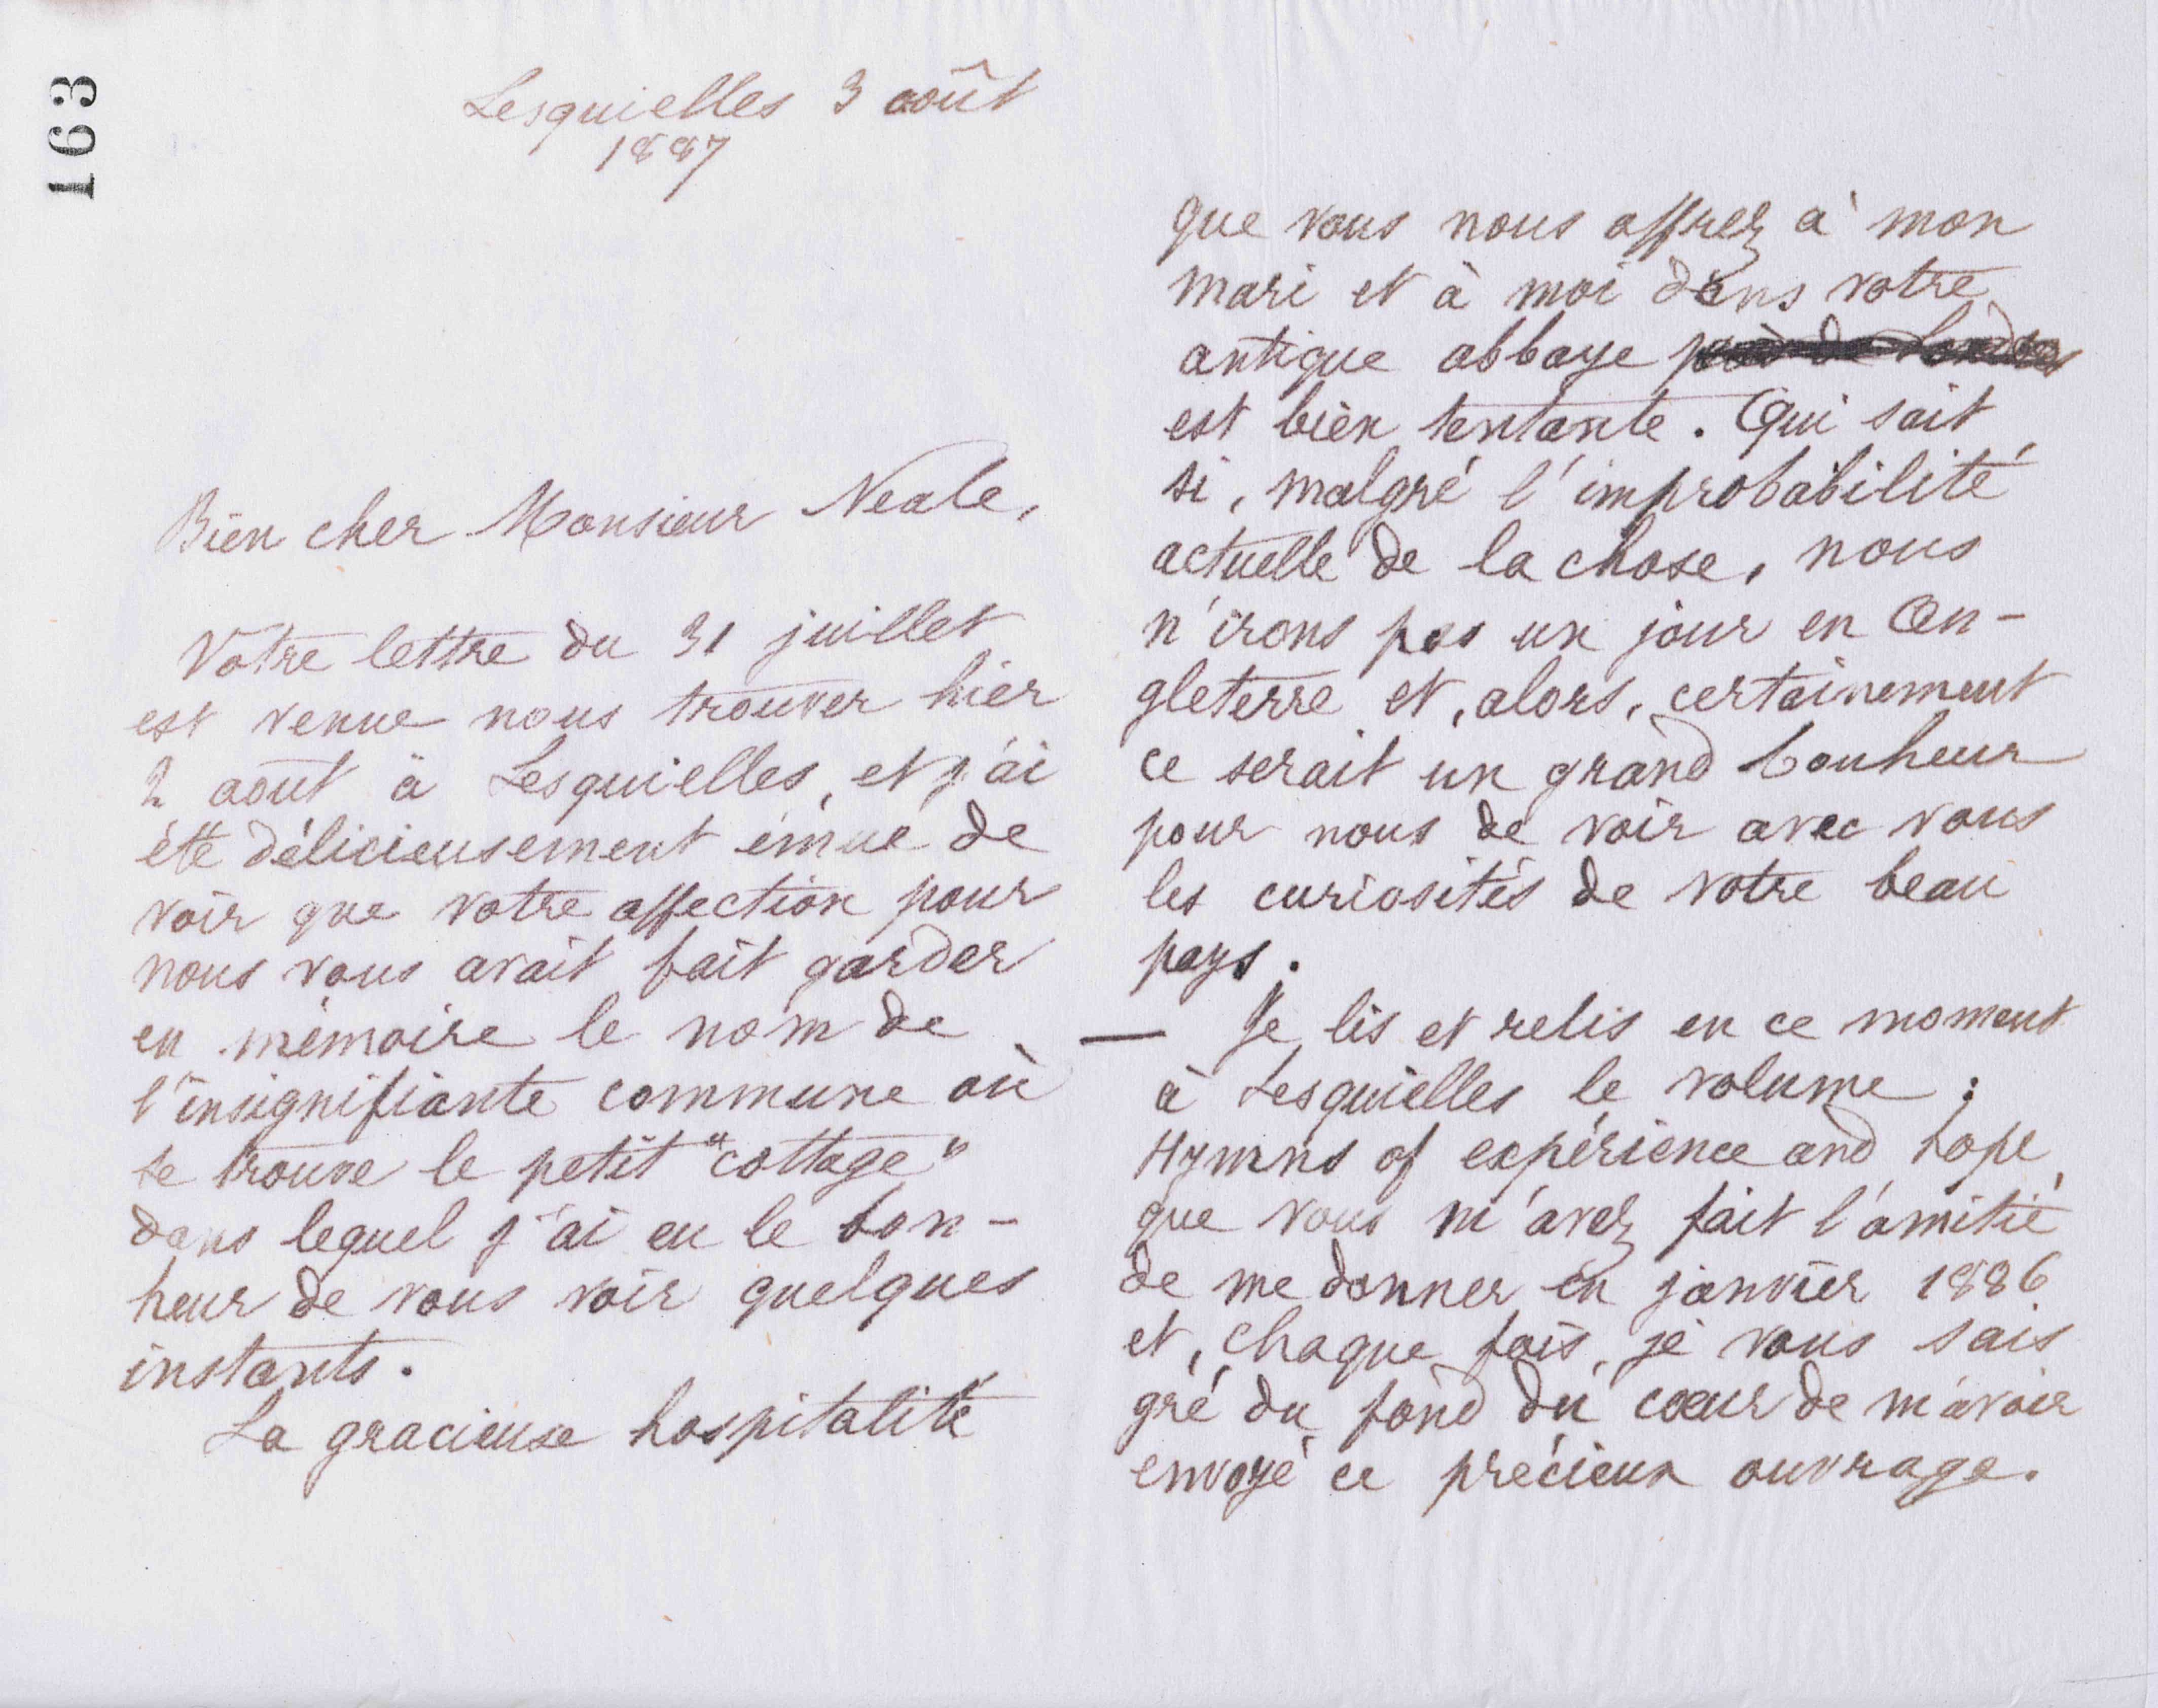 163
Lesquielles 3 août
1887
Bien cher Monsieur Neale,
Votre lettre du 31 juillet
est venue nous trouver hier
2 août à Lesquielles, et j'ai
été délicieusement émue de
voir que votre affection pour
nous vous avait fait garder
en mémoire le nom de
l'insignifiante commune où
se trouve le petit "cottage"
dans lequel j'ai eu le bon-
heur de vous voir quelques
instants.
La gracieuse hospitalité
que vous nous offrez à mon
mari et à moi dans votre
antique abbaye
est bien tentante. Qui sait
si, malgré l'improbabilité
actuelle de la chose, nous
n'irons pas un jour en An-
gleterre et, alors, certainement
ce serait un grand bonheur
pour nous de voir avec vous
les curiosités de votre beau
pays.
— Je lis et relis en ce moment
à Lesquielles le volume :
Hymns of expérience and hope,
que vous m'avez fait l'amitié
de me donner en janvier 1886
et, chaque fois, je vous sais
gré du fond du cœur de m'avoir
envoyé ce précieux ouvrage.